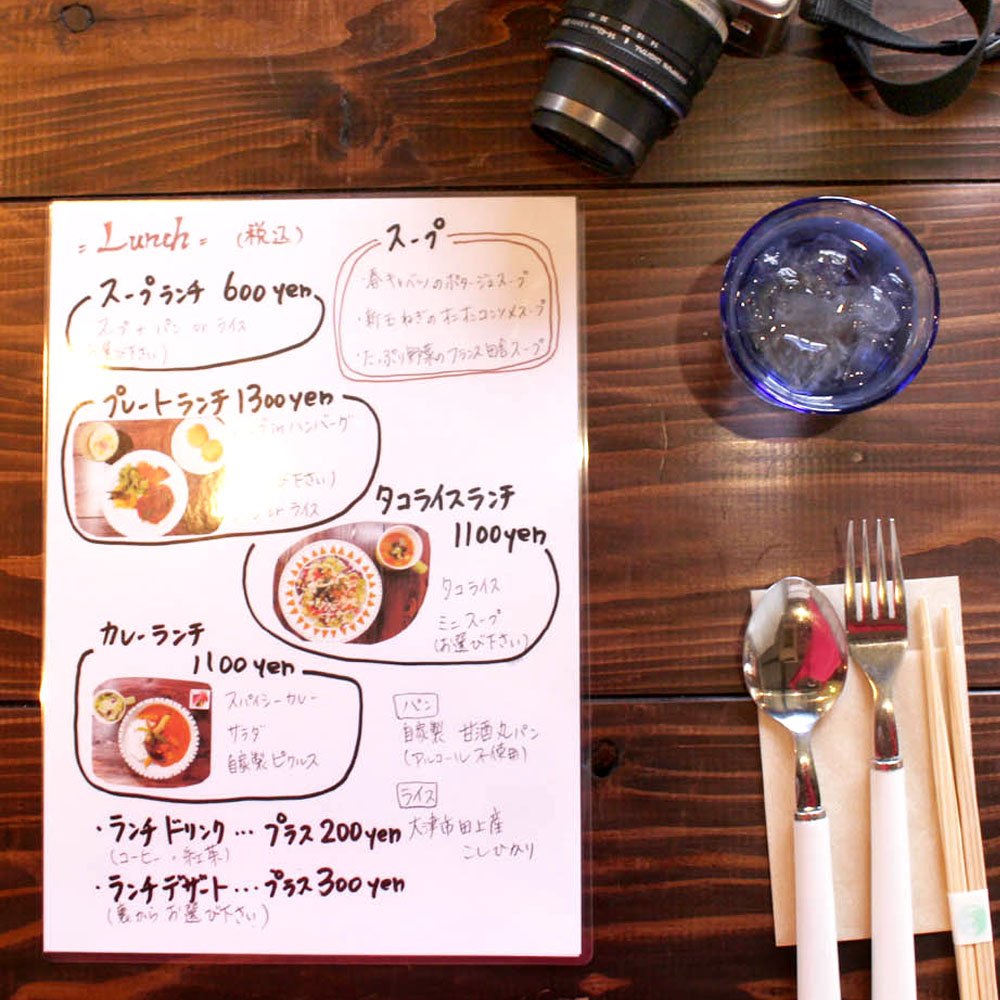 = Lunch = (税込)
スープランチ 600yen
スープ + パン or ライス
スープ
・春キャベツのポタージュスープ
・新玉ねぎのオニオンコンソメスープ
・たっぷり野菜のフランス田舎スープ
プレートランチ 1300yen
inハンバーグ
下さい)
or ライス
タコライスランチ
1100yen
タコライス
ミニスープ
(お選び下さい)
カレーランチ
1100yen
スパイシーカレー
サラダ
自家製ピクルス
パン
自家製 甘酒丸パン
(アルコール不使用)
ライス
大津市田上産
こしひかり
・ランチドリンク… プラス200yen
(コーヒー・紅茶)
・ランチデザート… プラス300yen
(裏からお選び下さい)